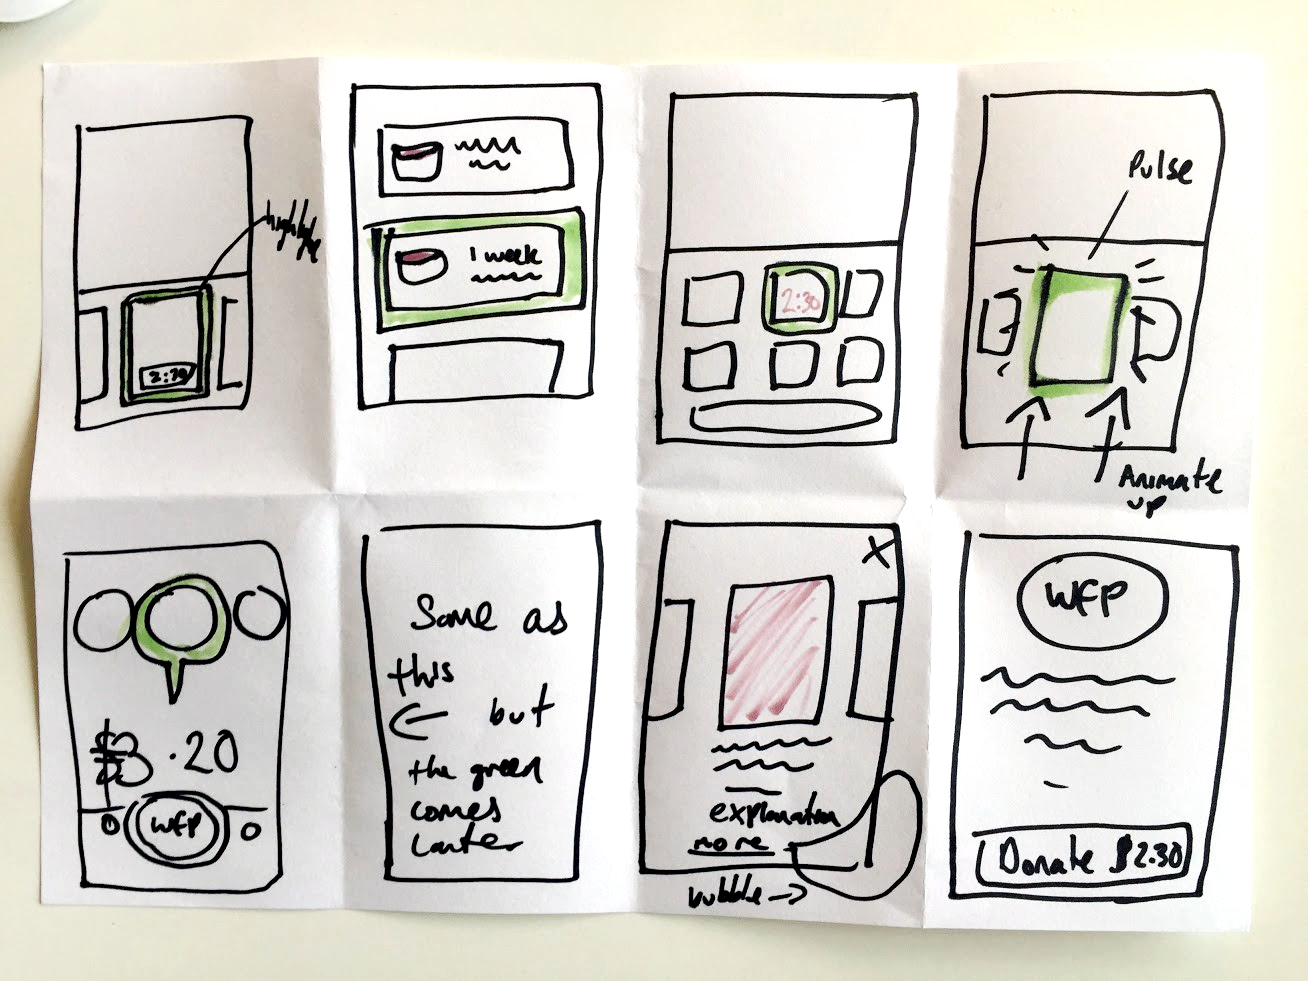 1 week
2:30
Pulse
Animate
up
$3.20
WFP
Same as
this
← but
the green
comes
later
X
explanation
more
bubble →
WFP
Donate $2.30